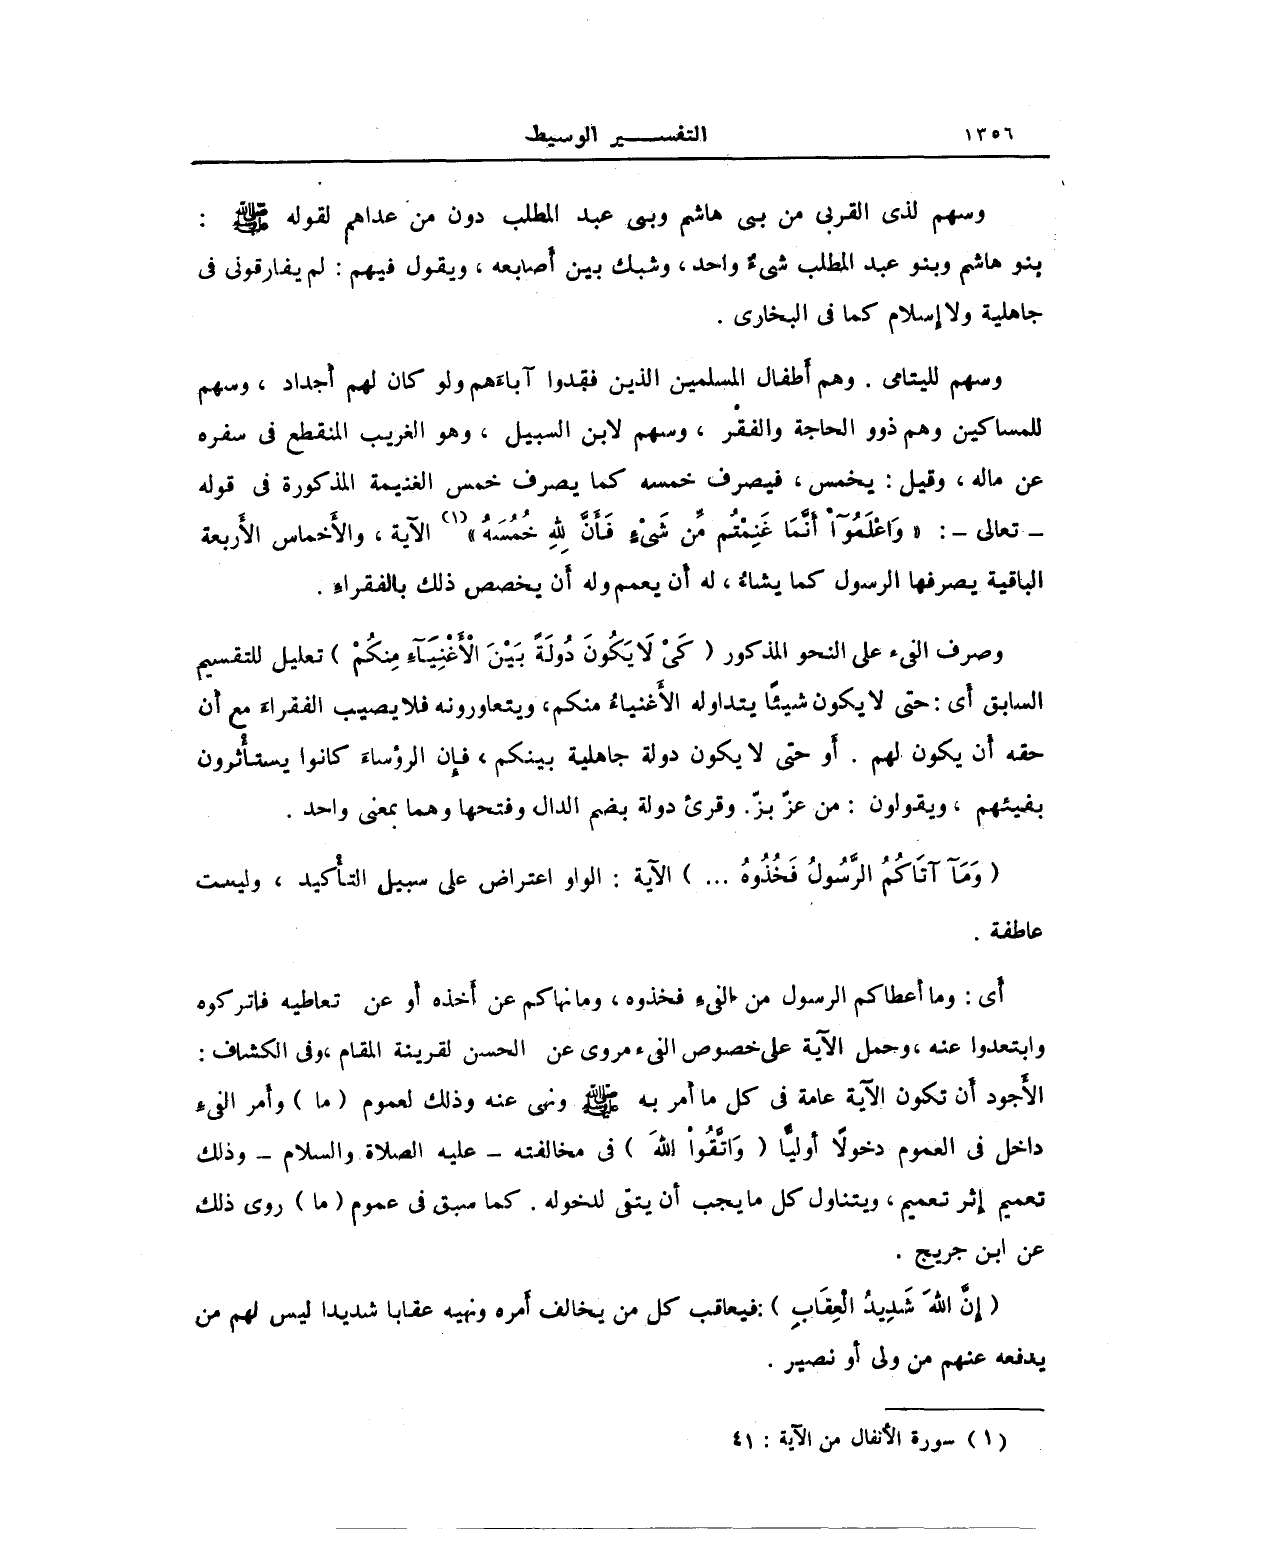 ١٣٥٦ التفسير الوسيط
وسهم لذى القربى من بنى هاشم وبنى عبد المطلب دون من عداهم لقوله ﷺ :
بنو هاشم وبنو عبد المطلب شىءٌ واحد ، وشبك بين أَصابعه ، ويقول فيهم : لم يفارقونى فى
جاهلية ولا إسلام كما فى البخارى .
وسهم لليتامى . وهم أَطفال المسلمين الذين فقدوا آباءَهم ولو كان لهم أَجداد ، وسهم
للمساكين وهم ذوو الحاجة والفقر ، وسهم لابن السبيل ، وهو الغريب المنقطع فى سفره
عن ماله ، وقيل : يخمس ، فيصرف خمسه كما يصرف خمس الغنيمة المذكورة فى قوله
ـ تعالى ـ : « وَاعْلَمُوٓاْ أَنَّمَا غَنِمْتُم مِّن شَىْءٍ فَأَنَّ لِلّهِ خُمُسَهُ »(١) الآية ، والأَخماس الأَربعة
الباقية يصرفها الرسول كما يشاءُ ، له أَن يعمم وله أَن يخصص ذلك بالفقراءِ .
وصرف الفىء على النحو المذكور ( كَىْ لَا يَكُونَ دُولَةً بَيْنَ الْأَغْنِيَآءِ مِنكُمْ ) تعليل للتقسيم
السابق أى : حتى لا يكون شيئًا يتداوله الأَغنياءُ منكم ، ويتعاورونه فلا يصيب الفقراءَ مع أن
حقه أن يكون لهم . أَو حتى لا يكون دولة جاهلية بينكم ، فإن الرؤساءَ كانوا يستأْثرون
بفيئهم ، ويقولون : من عزّ بزّ . وقرئ دولة بضم الدال وفتحها وهما بمعنى واحد .
( وَمَآ آتَاكُمُ الرَّسُولُ فَخُذُوهُ ... ) الآية : الواو اعتراض على سبيل التأْكيد ، وليست
عاطفة .
أى : وما أعطاكم الرسول من الفىءِ فخذوه ، وما نهاكم عن أَخذه أَو عن تعاطيه فاتركوه
وابتعدوا عنه ، وحمل الآية على خصوص الفىء مروى عن الحسن لقرينة المقام ، وفى الكشاف :
الأَجود أَن تكون الآية عامة فى كل ما أمر به ﷺ ونهى عنه وذلك لعموم ( ما ) وأَمر الفىءِ
داخل فى العموم دخولًا أَوليًّا ( وَاتَّقُواْ اللهَ ) فى مخالفته ـ عليه الصلاة والسلام ـ وذلك
تعميم إثر تعميم ، ويتناول كل ما يجب أن يتقى لدخوله . كما سبق فى عموم ( ما ) روى ذلك
عن ابن جريج .
( إِنَّ اللهَ شَدِيدُ الْعِقَابِ ) : فيعاقب كل من يخالف أَمره ونهيه عقابا شديدا ليس لهم من
يدفعه عنهم من ولى أَو نصير .
( ١ ) سورة الأنفال من الآية : ٤١